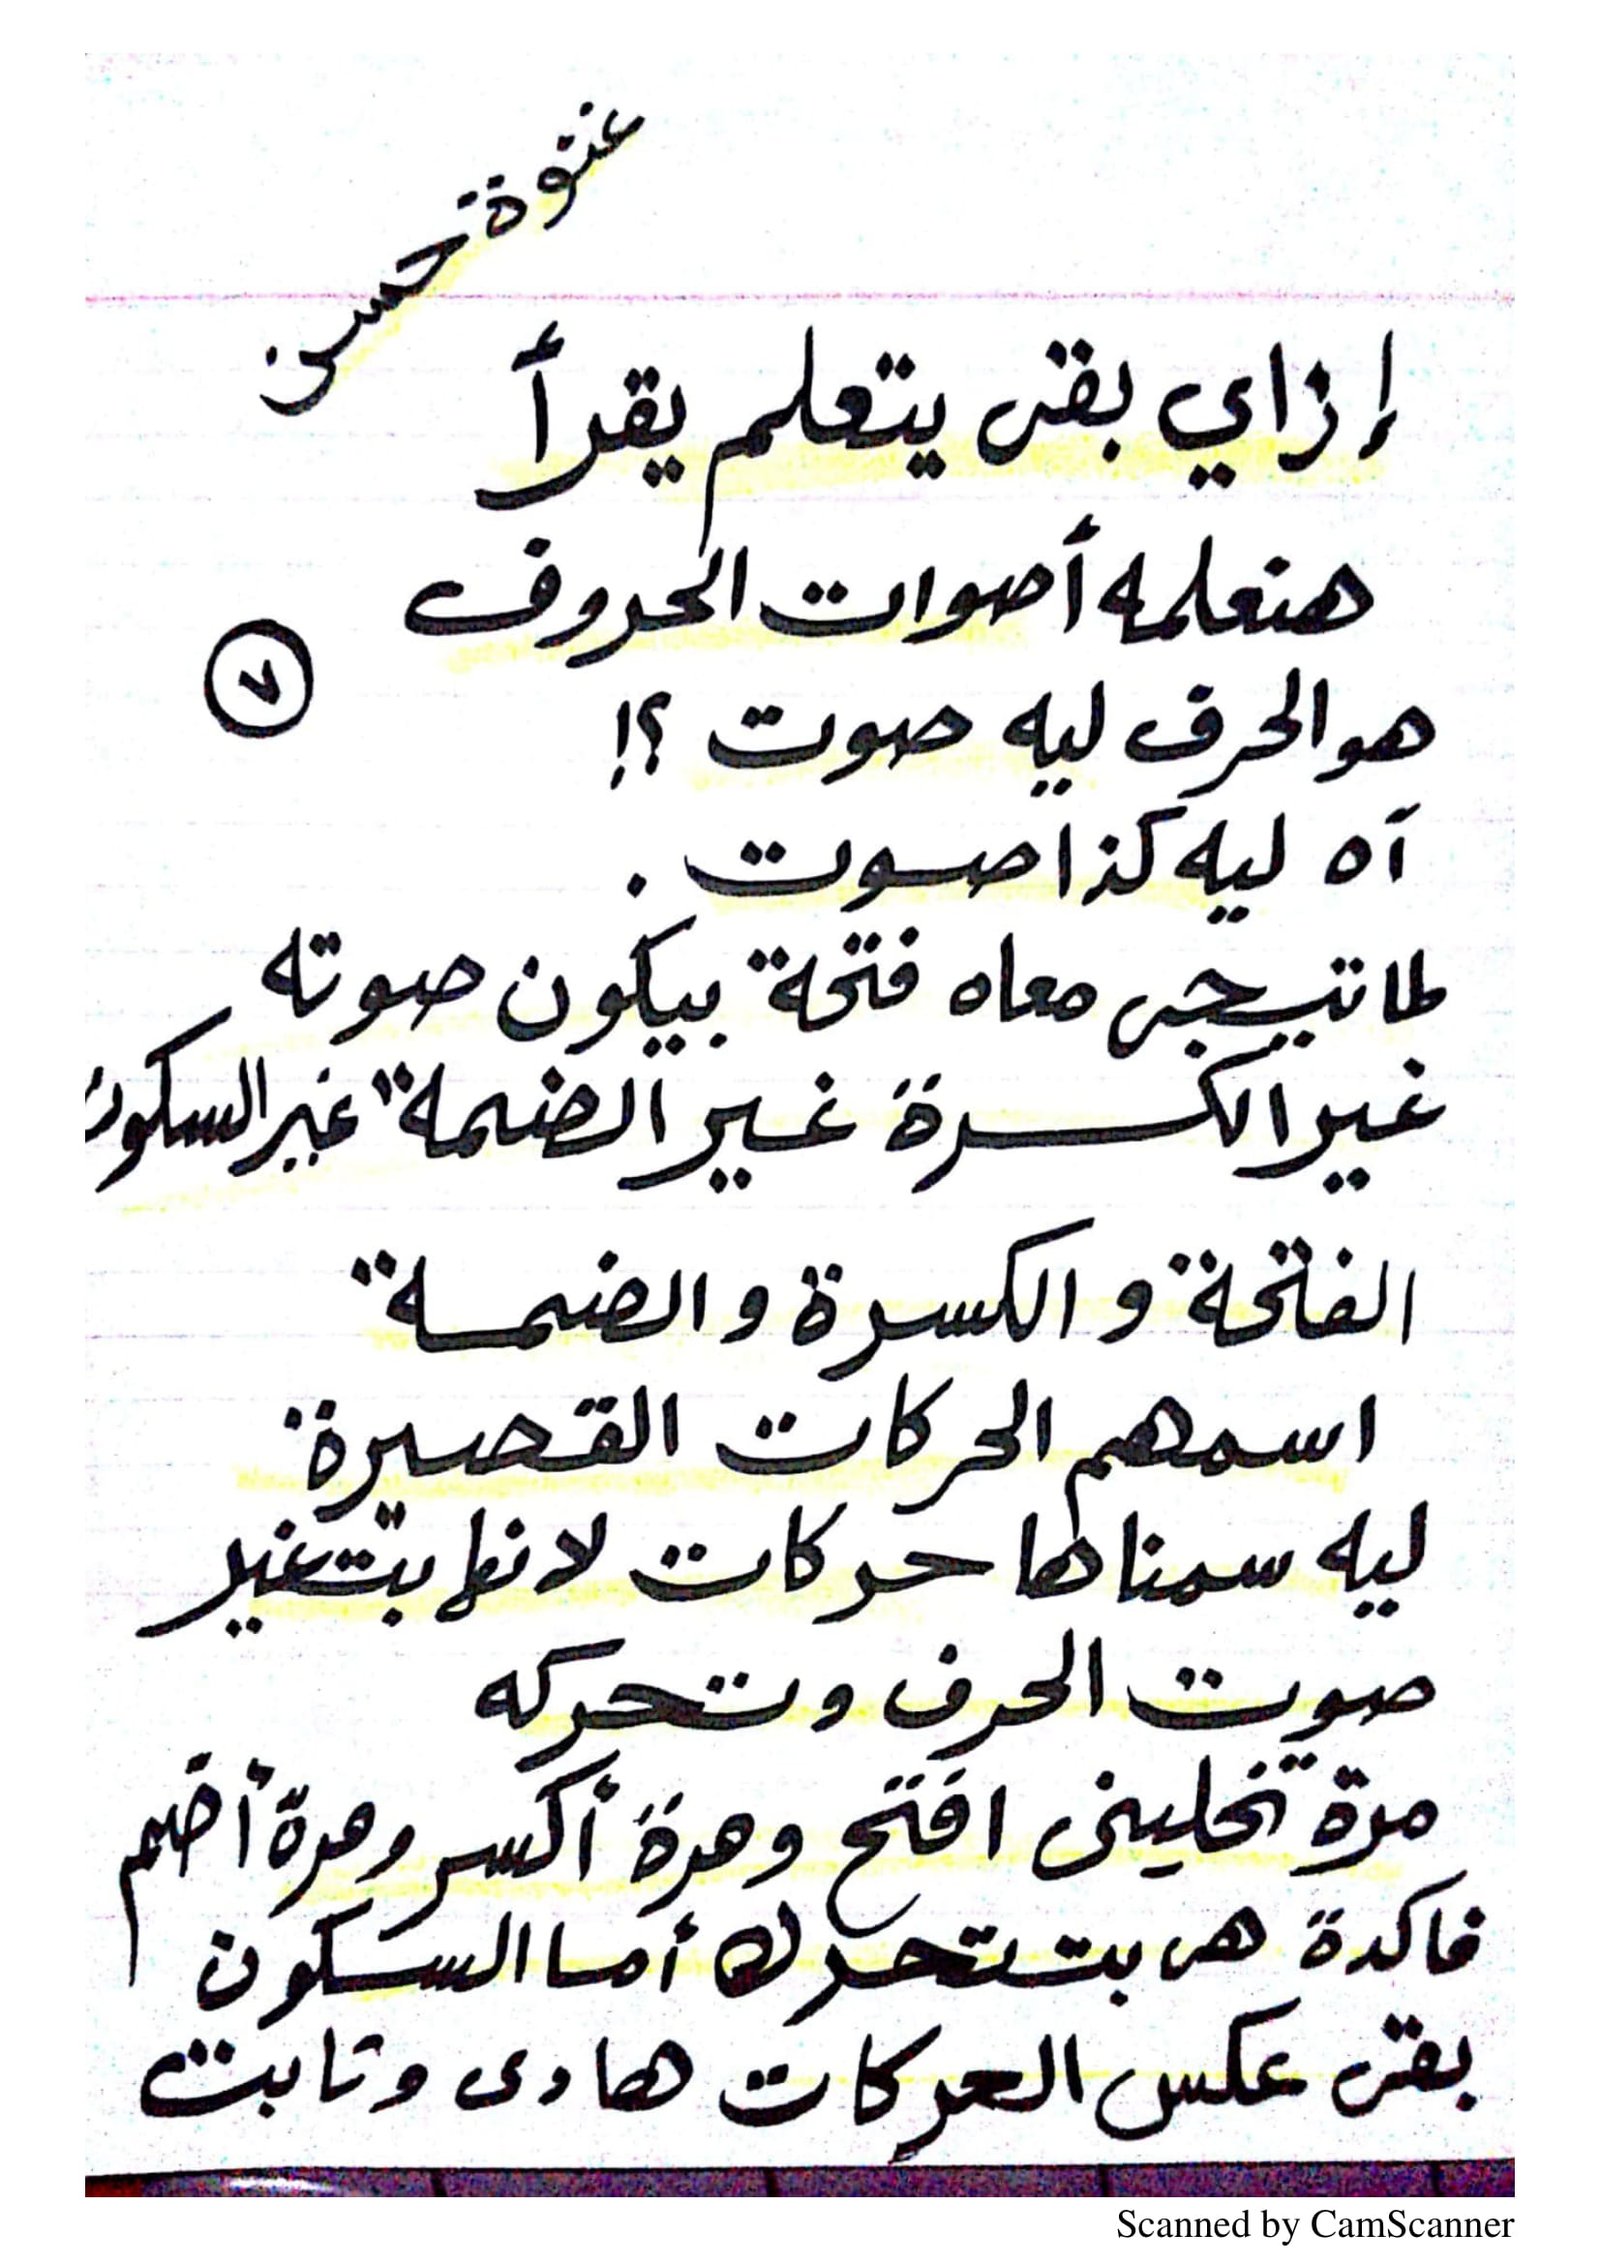 عنوة حسن
إزاي بقى يتعلم يقرأ
هنعلمه أصوات الحروف
٧
هو الحرف ليه صوت ؟!
آه ليه كذا صوت .
لما تيجى معاه فتحة بيكون صوته
غير الكسرة غير الضمة غير السكون
الفاتحة والكسرة والضمة
اسمهم الحركات القصيرة
ليه سمناها حركات لانها بتغير
صوت الحرف وتحركه
مرة تخلينى افتح ومرة أكسر ومرة أضم
فاكدة هى بتتحرك أما السكون
بقى عكس الحركات هادى وثابت
Scanned by CamScanner